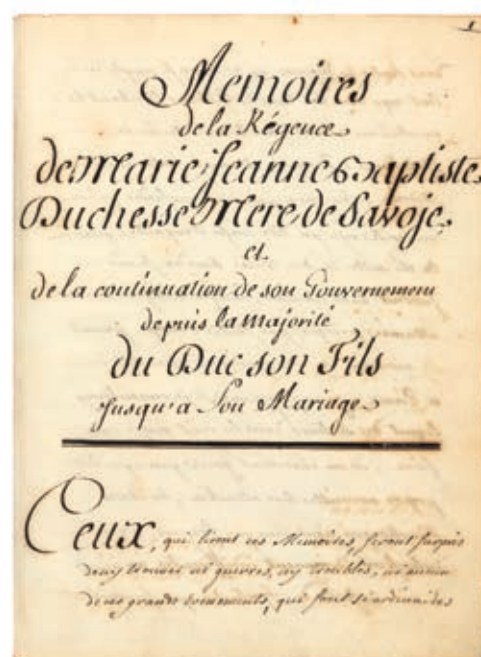 1
Memoires
de la Régence
de Marie Jeanne Baptiste
Duchesse Mere de Savoje,
et
de la continuation de son Gouvernement
depuis la Majorité
du Duc son Fils
Jusqu'a Son Mariage
Ceux, qui liront ces Memoires, seront surpris
de n'y trouver ni guerres, ny troubles, ni aucun
de ces grands evenements, qui sont si ordinaires